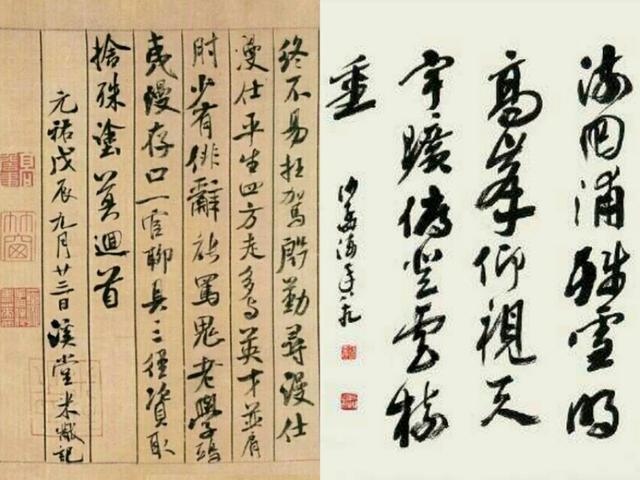 終不易枉駕殷勤尋漫仕
漫仕平生四方走多与英才並肩
肘少有俳辭能罵鬼老學鴟
夷漫存口一官聊具三徑資取
捨殊塗莫迴首
元祐戊辰九月廿三日溪堂米黻記
浦雪明
高峯仰視天
宇曠登雲
重
沙孟海